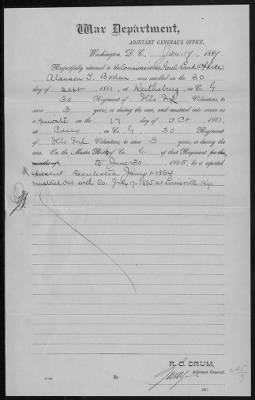 War Department,
ADJUTANT GENERAL'S OFFICE,
Washington, D. C., Jan 17, 188
Respectfully returned to the Commissioner
Alanson T. Boden was enrolled on the 30
day of Sept, 1861, at Keithsburg in Co. G
30 Regiment of Ills Inf Volunteers, to
serve 3 years, and was mustered into service as
a private on the 17 day of Oct, 1861,
at in Co. G, 30 Regiment
of Ills Inf Volunteers, to serve 3 years, or during the
war. On the Muster Roll of Co. G. of that Regiment for the
to June 30, 1865, he is reported
present Jany 1 1864
mustered out with Co. July 17, 1865 at Louisville Ky.
R. C. DRUM,
Adjutant General.
By